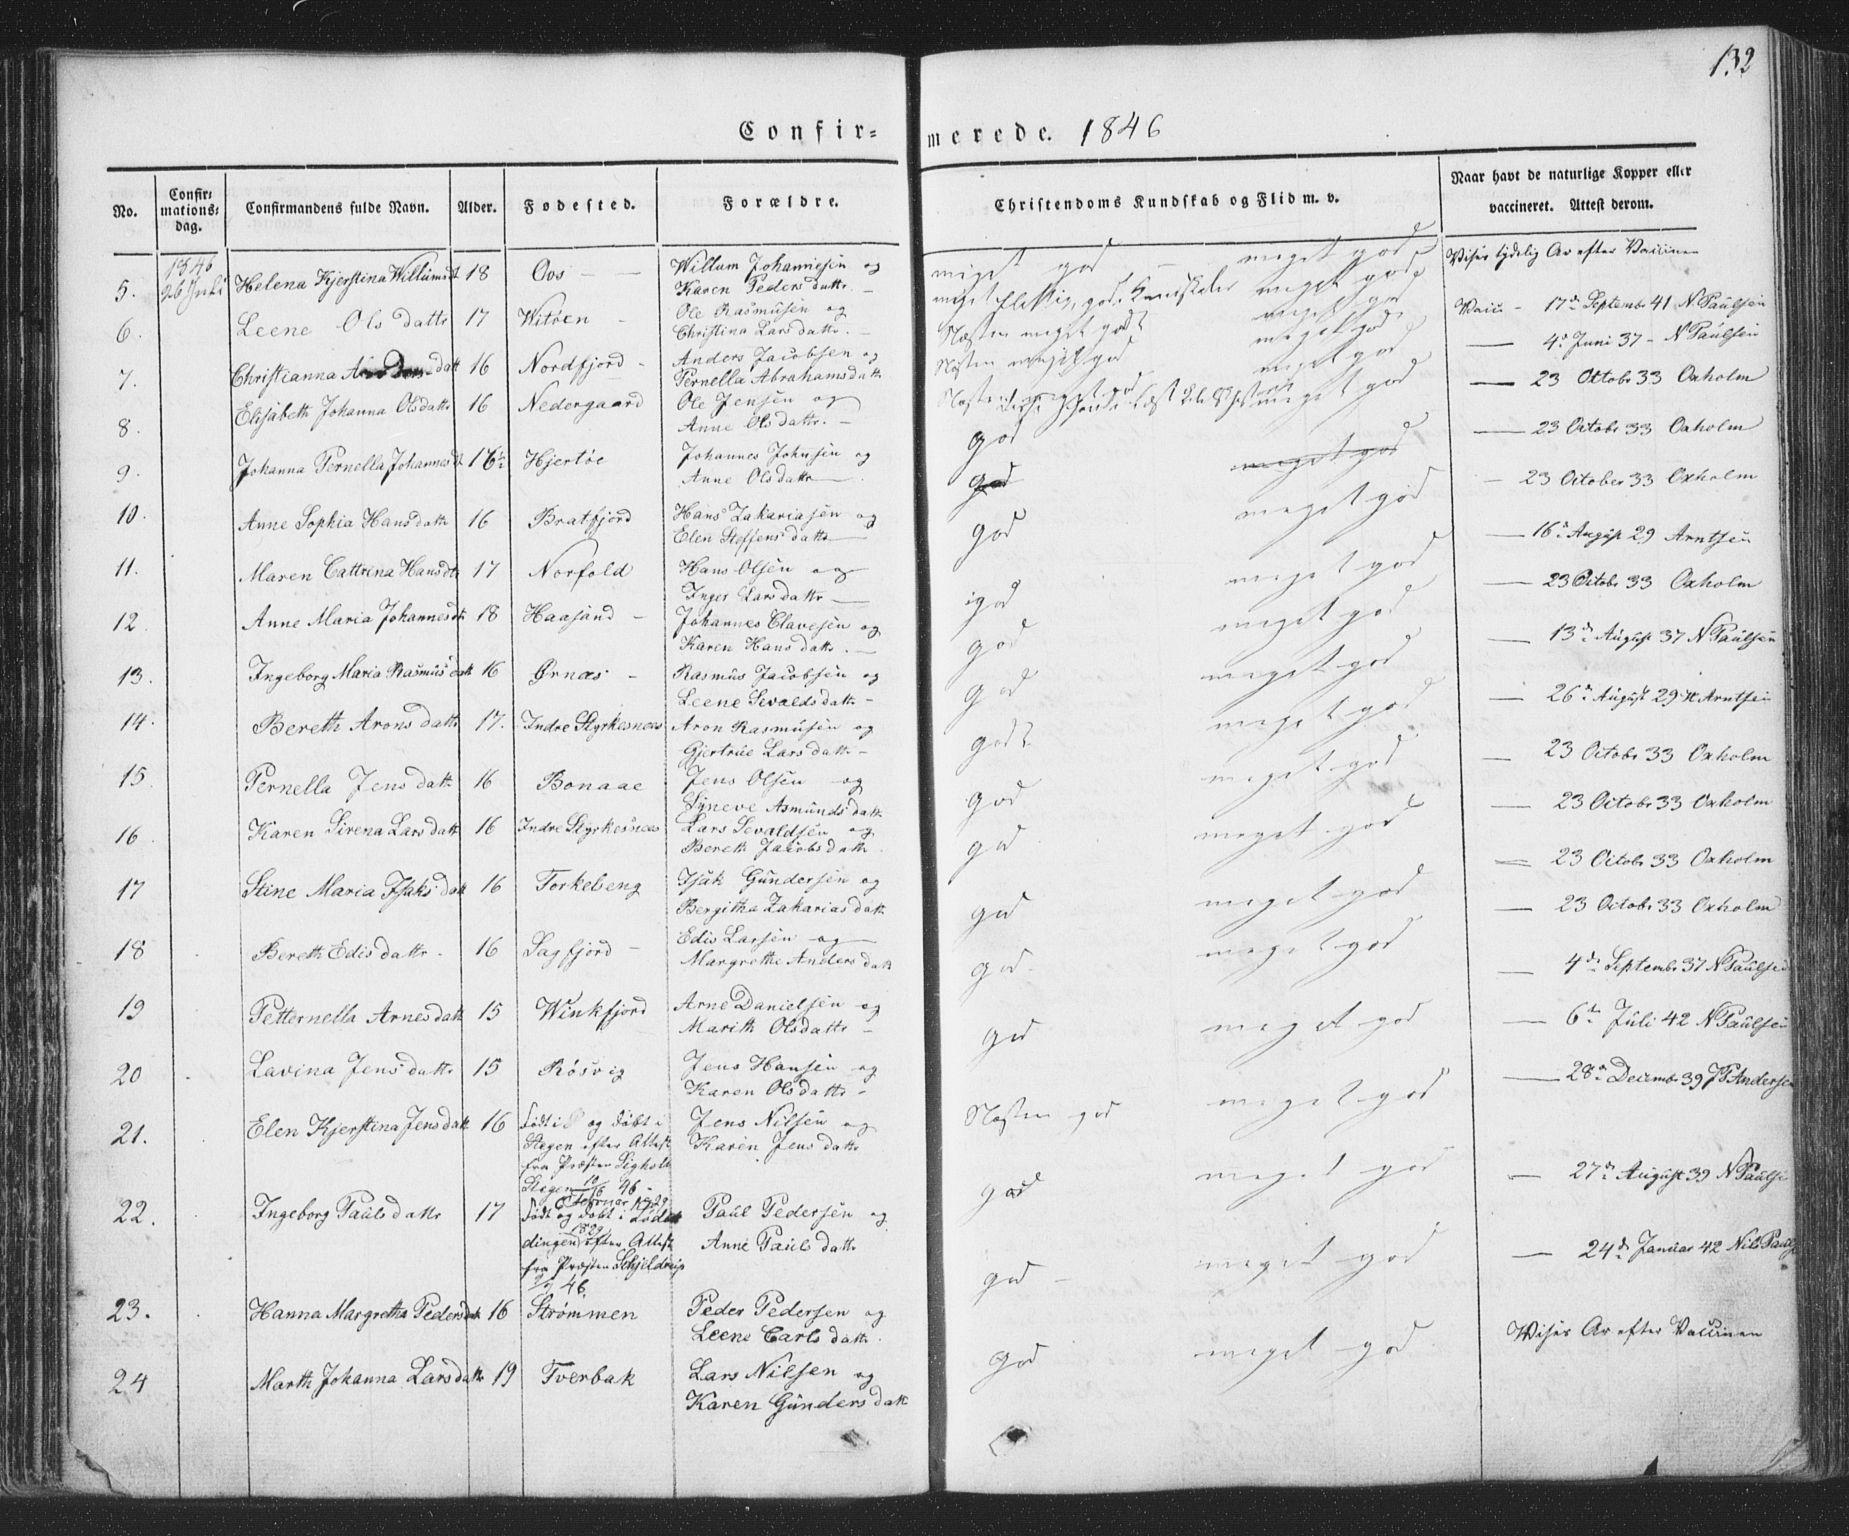 132
Confir= merede. 1846
No. Confir=mations=dag. Confirmandens fulde Navn. Alder. Fødested. Forældre. Christendoms Kundskab og Flid m. v. Naar havt de naturlige Kopper eller vaccineret. Attest derom.
5. 1846 26 Juli Helena Kjerstina Willumsdt 18 Oos Willum Johannesen og Karen Pedersdattr. meget god meget god Viser tydelig Ar efter Vaccinen
6. Leene Olsdattr 17 Witöen Ole Rasmusen og Christina Larsdattr. meget god Vacc 17de Septembr 41 N Paulsen
7. Christianna datt 16 Nordfjord Anders Jacobsen og Pernella Abrahamsdattr Næsten meget god meget god 4de Juni 37 N Paulsen
8. Elisabeth Johanna Olsdattr 16 Nedergaard Ole Jensen og Anne Olsdattr. god meget god 23 Octobr 33 Oxholm
9. Johanna Pernella Johannesdt 16½ Hjertöe Johannes Johnsen og Anne Olsdattr god meget god 23 Octobr 33 Oxholm
10. Anne Sophia Hansdattr 16 Bratfjord Hans Zakariasen og Elen Steffensdattr god meget god 23 October 33 Oxholm
11. Maren Cattrina Hansdtr 17 Norfold Hans Olsen og Inger Larsdattr god meget god 16de August 29 Arntsen
12. Anne Maria Johannesdt 18 Haasand Johannes Clavesen og Karen Hansdattr. god meget god 23 Octobr 33 Oxholm
13. Ingeborg Maria Rasmusdatt 16 Ørnæs Rasmus Jacobsen og Leene Sevaldsdattr god meget god 13de August 37 N Paulsen
14. Bereth Aronsdattr 17. Indre Styrkesnees Aron Rasmusen og Gjertrue Larsdattr godt meget god 26de August 29 H Arntsen
15. Pernella Jensdattr 16 Bonaae Jens Olsen og Syneve Asmundsdatt god meget god 23 Octobr 33 Oxholm
16. Karen Sirena Larsdatt 16 Indre Styrkesnees Lars Sevaldsen og Bereth Jacobsdattr god meget god 23 Octobr 33 Oxholm
17 Stine Maria Isaksdatt 16 Torkeleng Isak Gundersen og Bergitha Zakariasdatt god meget god 23 Octobr 33 Oxholm
18 Bereth Edisdattr. 16 Sagfjord Edis Larsen og Margrethe Andersdatt god meget god 23 Octobr 33 Oxholm
19 Petternella Arnesdatt 15 Winkfjord Arne Danielsen og Marith Olsdattr god meget god 4de Septembr 37 N Paulsen
20 Lavina Jensdattr 15 Rösvig Jens Hansen og Karen Olsdattr Næsten god meget god 6te Juli 42 N Paulsen
21. Elen Kjerstina Jensdatt 16 Födt i og döbt i Stegen efter Attest fra Præsten Sigholt Stegen 46 Jens Nilsen og Karen Jensdattr god meget god 28de Decembr 39 Andersen
22. Ingeborg Paulsdattr 17 Februar 1829 Födt og döbt i Lödingen efter Attest fra Præsten Schjelderup 46. Paul Pedersen og Anne Paulsdattr god meget god 27de August 39 N Paulse
23. Hanna Margretha Pedersdatt 16 Strømmen Peder Pedersen og Leene Carlsdattr. god meget god 24de Januar 42 Nils Paul
24 Marth Johanna Larsdattr 19 Tverbak Lars Nilsen og Karen Gundersdatt Wiser Ar efter Vaccinen